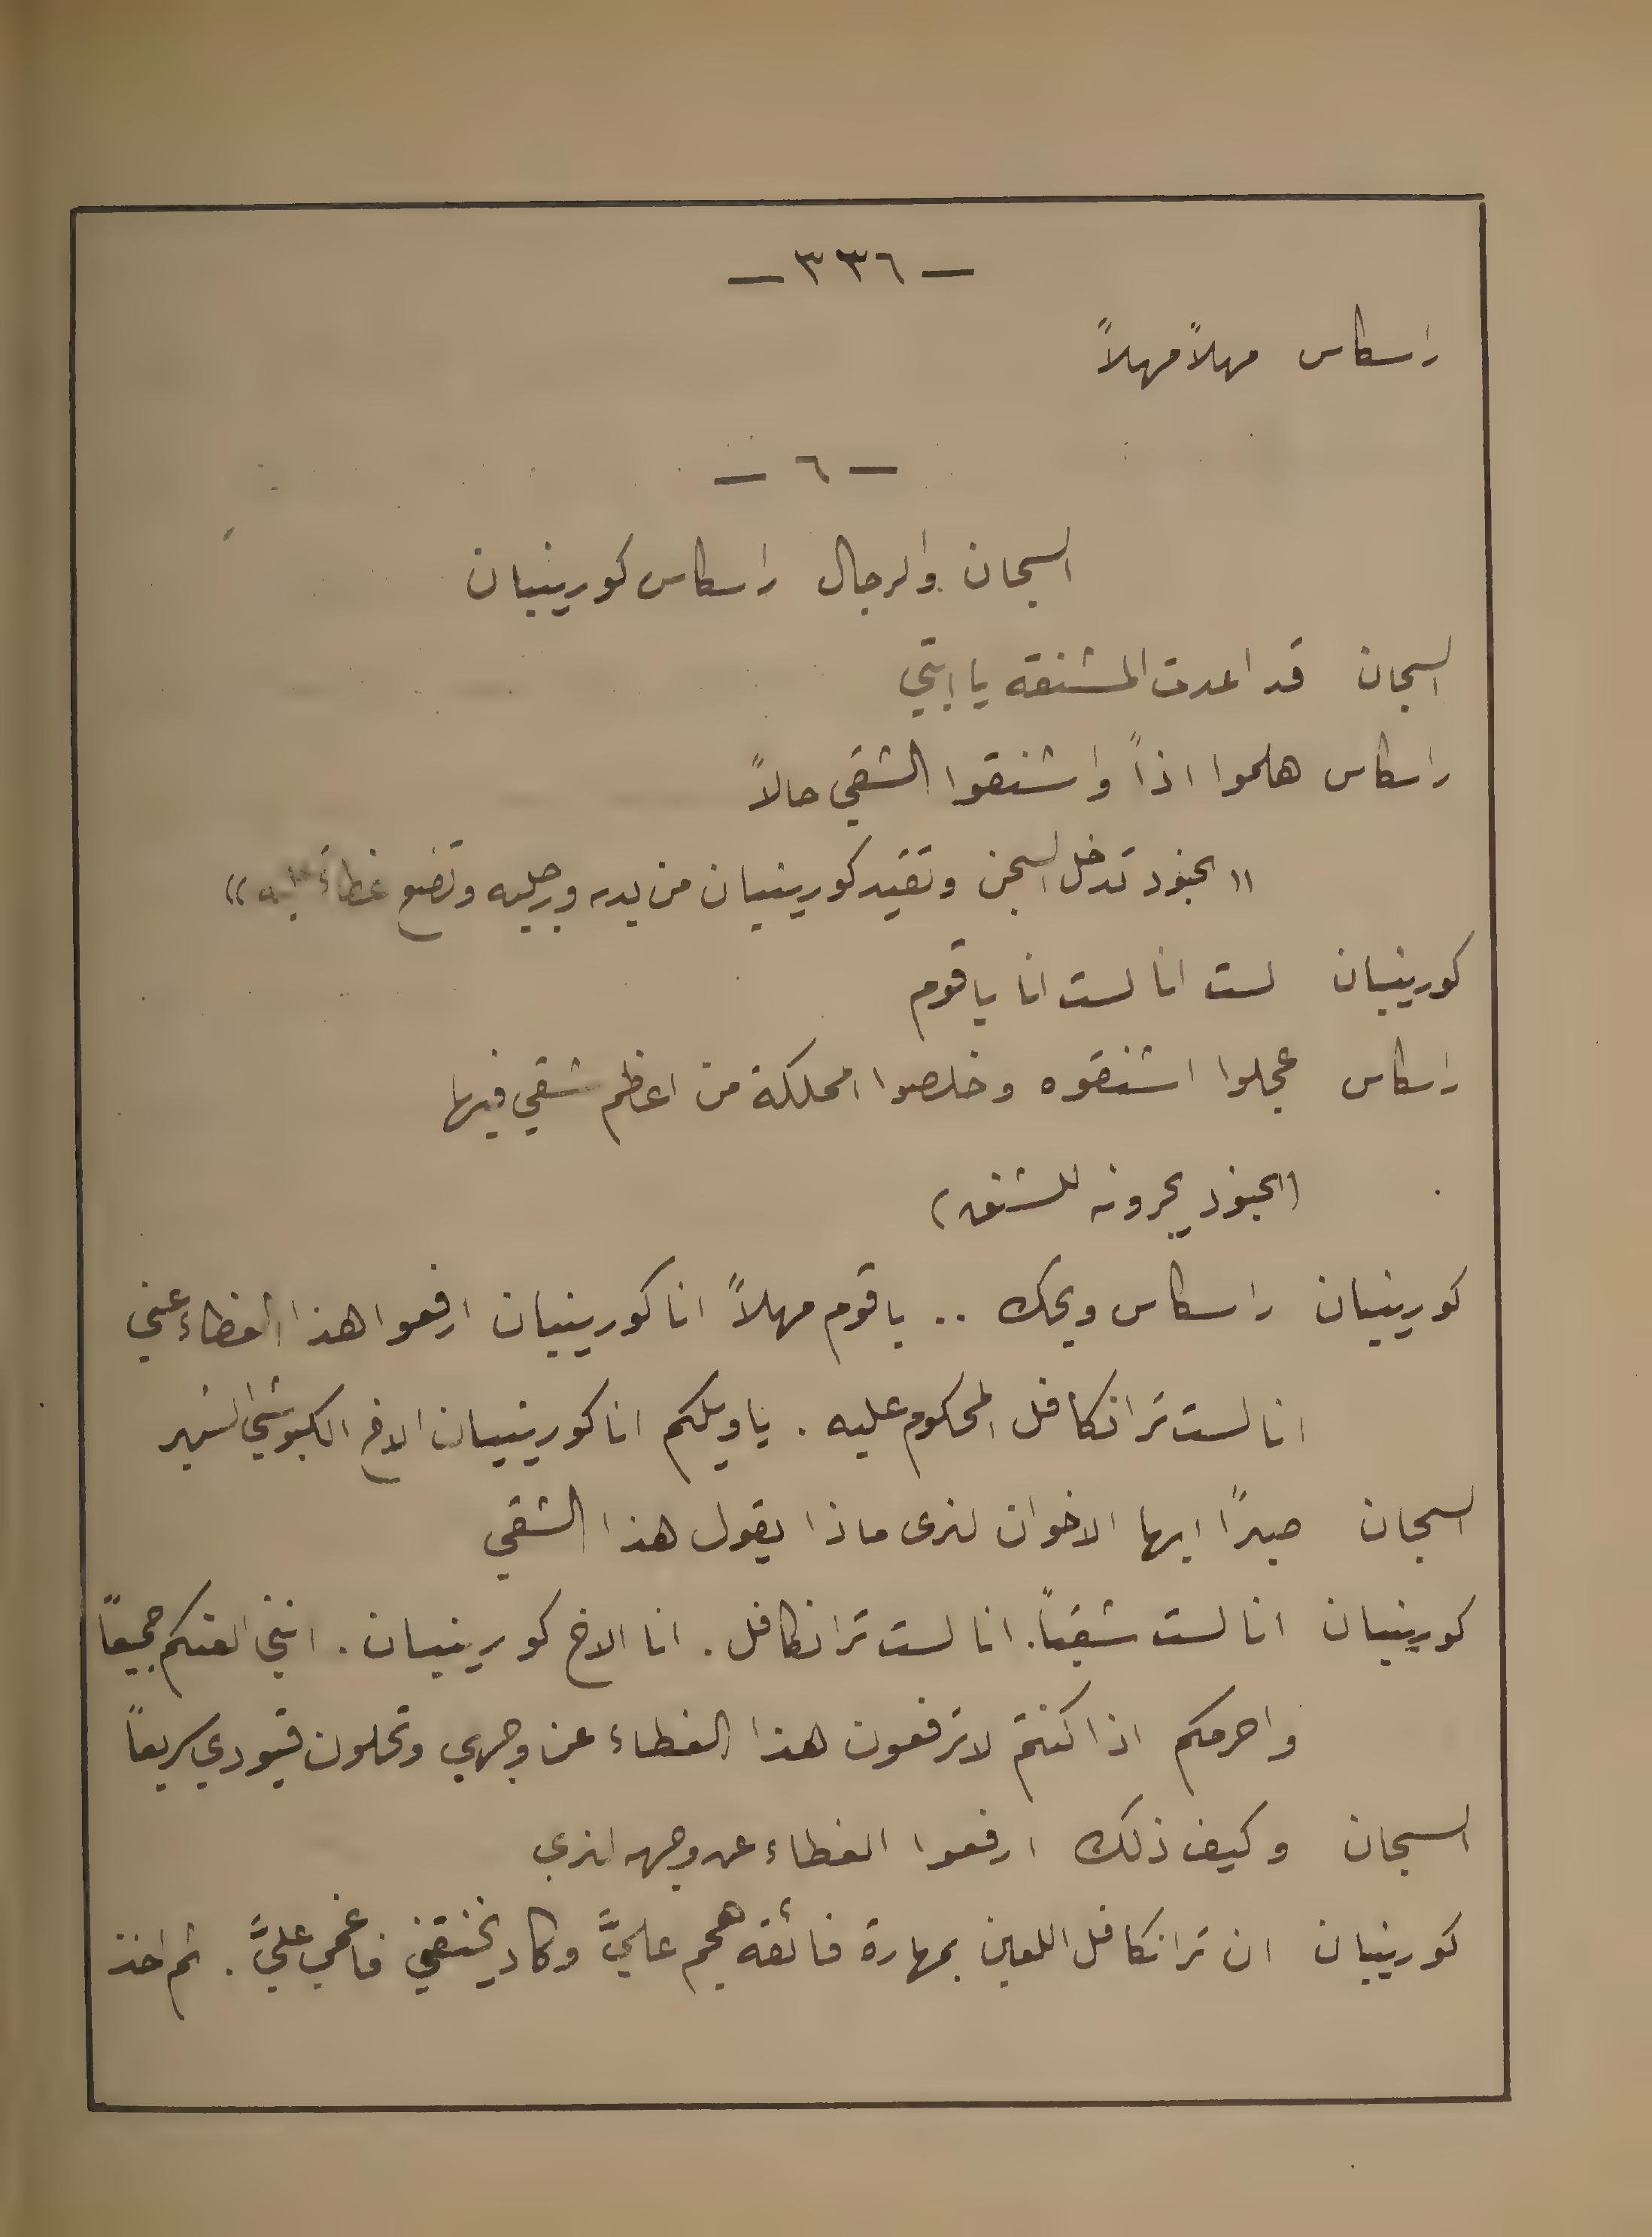 — ٣٣٦ —
راسكاس مهلاً مهلاً
— ٦ —
السجان والرجال راسكاس كورينيان
السجان قد اعدت المشنقة يا ابتي
راسكاس هلموا اذاً واشنقوا الشقي حالاً
(( الجنود تدخل السجن وتقيد كورينيان من يديه ورجليه وتضع غطاءً عليه ))
كورينيان لست انا لست انا يا قوم
راسكاس عجلوا اشنقوه وخلصوا المملكة من اعظم شقي فيها
(الجنود يجرونه للشنق)
كورينيان راسكاس ويحك .. يا قوم مهلاً انا كورينيان ارفعوا هذا الغطاء عني
انا لست ترانكافل المحكوم عليه . يا ويلكم انا كورينيان الاخ الكبوشي الشهير
السجان صبرًا ايها الاخوان لنرى ماذا يقول هذا الشقي
كورينيان انا لست شقيًا. انا لست ترانكافل . انا الاخ كورينيان . انني العنكم جميعاً
واحرمكم اذا كنتم لا ترفعون هذا الغطاء عن وجهي وتحلون قيودي سريعاً
السجان وكيف ذلك ارفعوا الغطاء عن وجهه لنرى
كورينيان ان ترانكافل اللعين بمهارة فائقة هجم عليَّ وكاد يخنقني فاغمي عليَّ . ثم اخذ